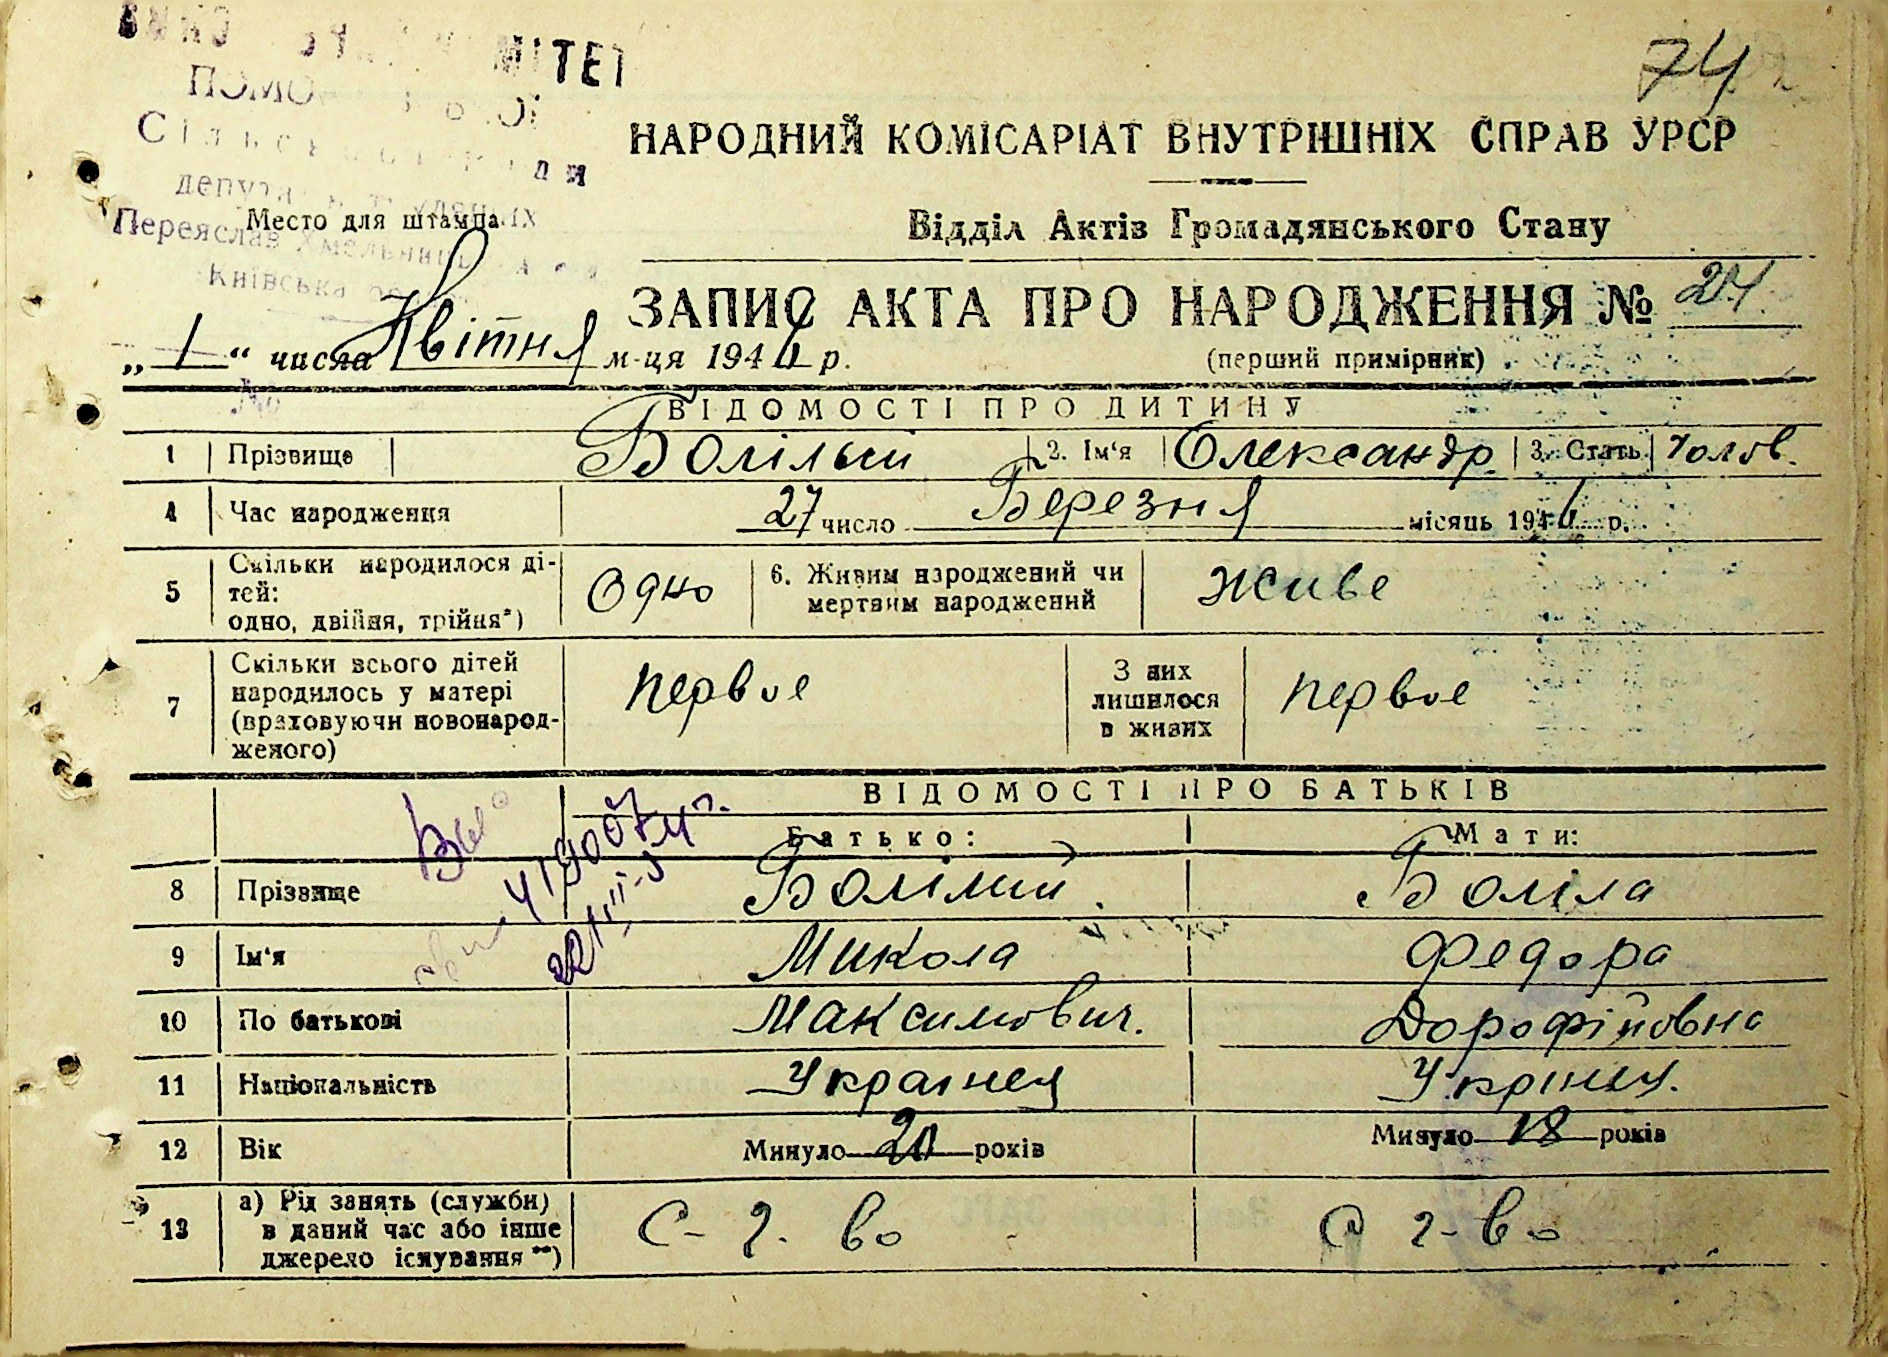 74
НАРОДНИЙ КОМІСАРІАТ ВНУТРІШНІХ СПРАВ УРСР
Місто для штампа
Переяслав Хмельниць
Київська
Відділ Актів Громадянського Стану
ЗАПИС АКТА ПРО НАРОДЖЕННЯ № 24
„ 1 “ числа Квітня м-ця 1941 р.
(перший примірник)
ВІДОМОСТІ ПРО ДИТИНУ
1 Прізвище Болілий 2. Ім'я Олександр 3. Стать чолов.
4 Час народження 27 число Березня місяць 1941 р.
5 Скільки народилося ді-
тей:
одно, двійня, трійня*) Одно 6. Живим народжений чи
мертвим народжений живе
7 Скільки всього дітей
народилось у матері
(враховуючи новонарод-
женого) первое З них
лишилося
в живих первое
ВІДОМОСТІ ПРО БАТЬКІВ
Батько: Мати:
8 Прізвище Болілий Боліла
9 Ім'я Микола Федора
10 По батькові Максимович. Дорофійовна
11 Національність Українец Укрінка.
12 Вік Минуло 20 років Минуло 18 років
13 а) Рід занять (служби)
в даний час або інше
джерело існування **) С-г. во С г-во